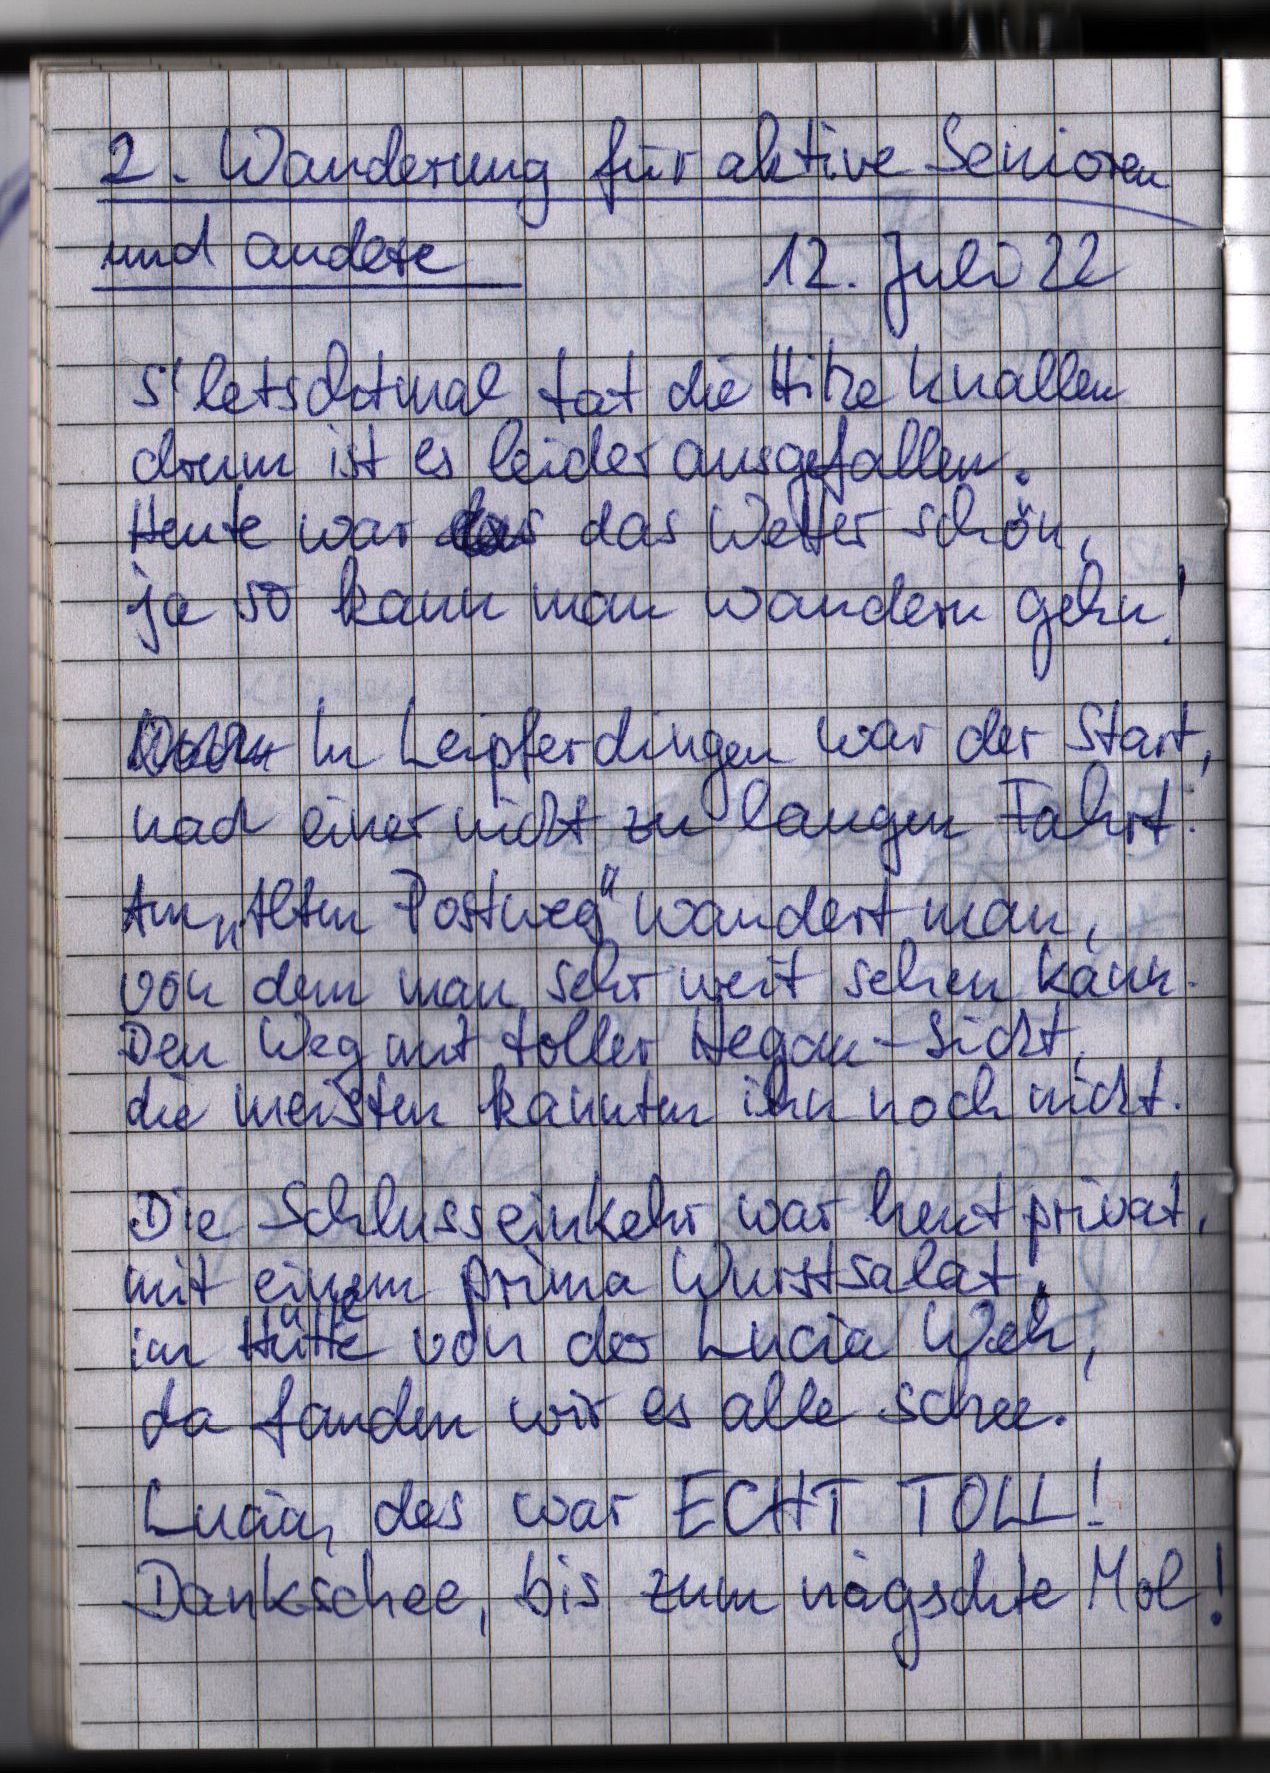 2. Wanderung für aktive Senioren
und andere 12. Juli 22
S'letschtmal tat die Hitze knallen
drum ist es leider ausgefallen.
Heute war das Wetter schön,
ja so kann man wandern gehn!
In Leipferdingen war der Start,
nach einer nicht zu langen Fahrt.
Am „Alten Postweg" wandert man,
von dem man sehr weit sehen kann.
Den Weg mit toller Hegau-Sicht,
die meisten kannten ihn noch nicht.
Die Schlusseinkehr war heut privat,
mit einem prima Wurstsalat,
im Hüttle von der Lucia Weh,
da fanden wir es alle schee.
Lucia, des war ECHT TOLL!
Dankschee, bis zum nägschte Mol!